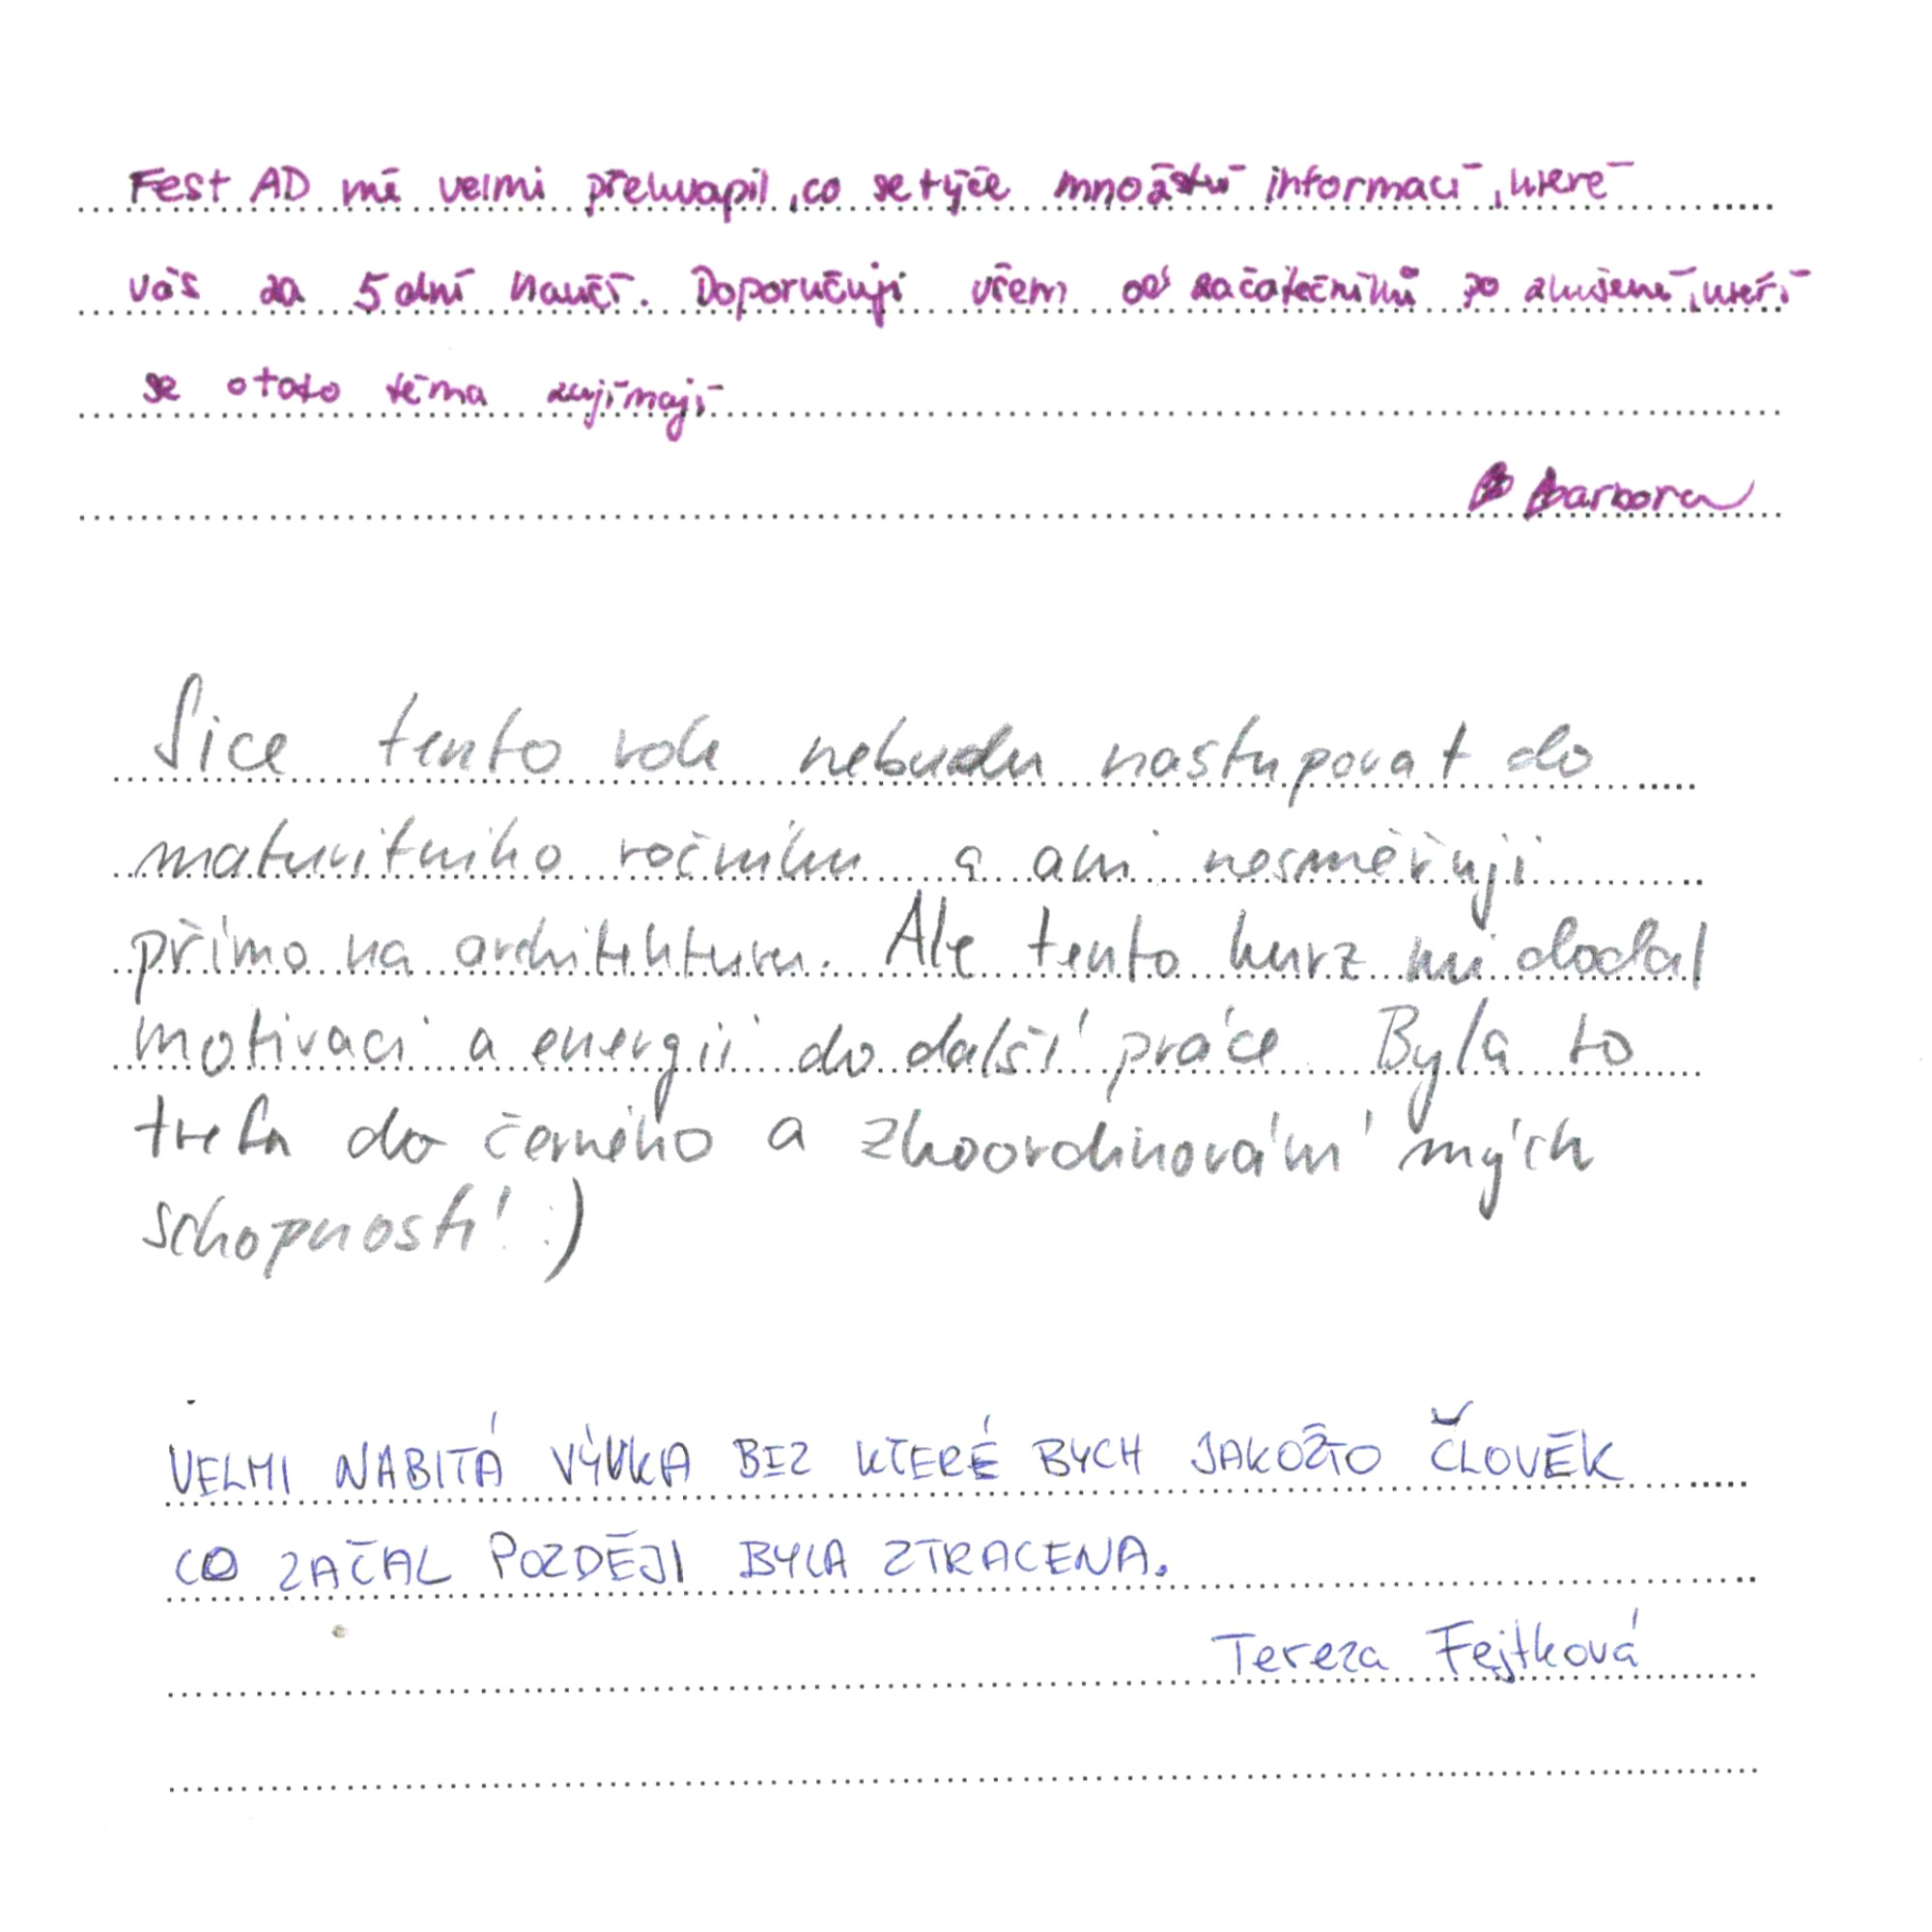 Fest AD mě velmi překvapil, co se týče množství informací, které
vás za 5 dní naučí. Doporučuji všem od začátečníků po zkušené, kteří
se o toto téma zajímají
Barbora
Sice tento rok nebudu nastupovat do
maturitního ročníku a ani nesměřuji
přímo na architekturu. Ale tento kurz mi dodal
motivaci a energii do další práce. Byla to
trefa do černého a zkoordinování mých
schopností :)
VELMI NABITÁ VÝUKA BEZ KTERÉ BYCH JAKOŽTO ČLOVĚK
CO ZAČAL POZDĚJI BYLA ZTRACENA.
Tereza Fejtková